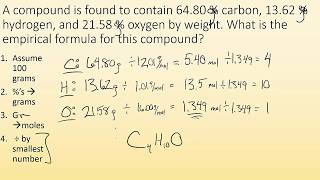 A compound is found to contain 64.80 % carbon, 13.62 %
hydrogen, and 21.58 % oxygen by weight. What is the
empirical formula for this compound?
1. Assume 100 grams
2. %'s → grams
3. Gr → moles
4. ÷ by smallest number
C: 64.80g ÷ 12.01 g/mol = 5.40 mol ÷ 1.349 = 4
H: 13.62g ÷ 1.01 g/mol = 13.5 mol ÷ 1.349 = 10
O: 21.58g ÷ 16.00 g/mol = 1.349 mol ÷ 1.349 = 1
C₄H₁₀O